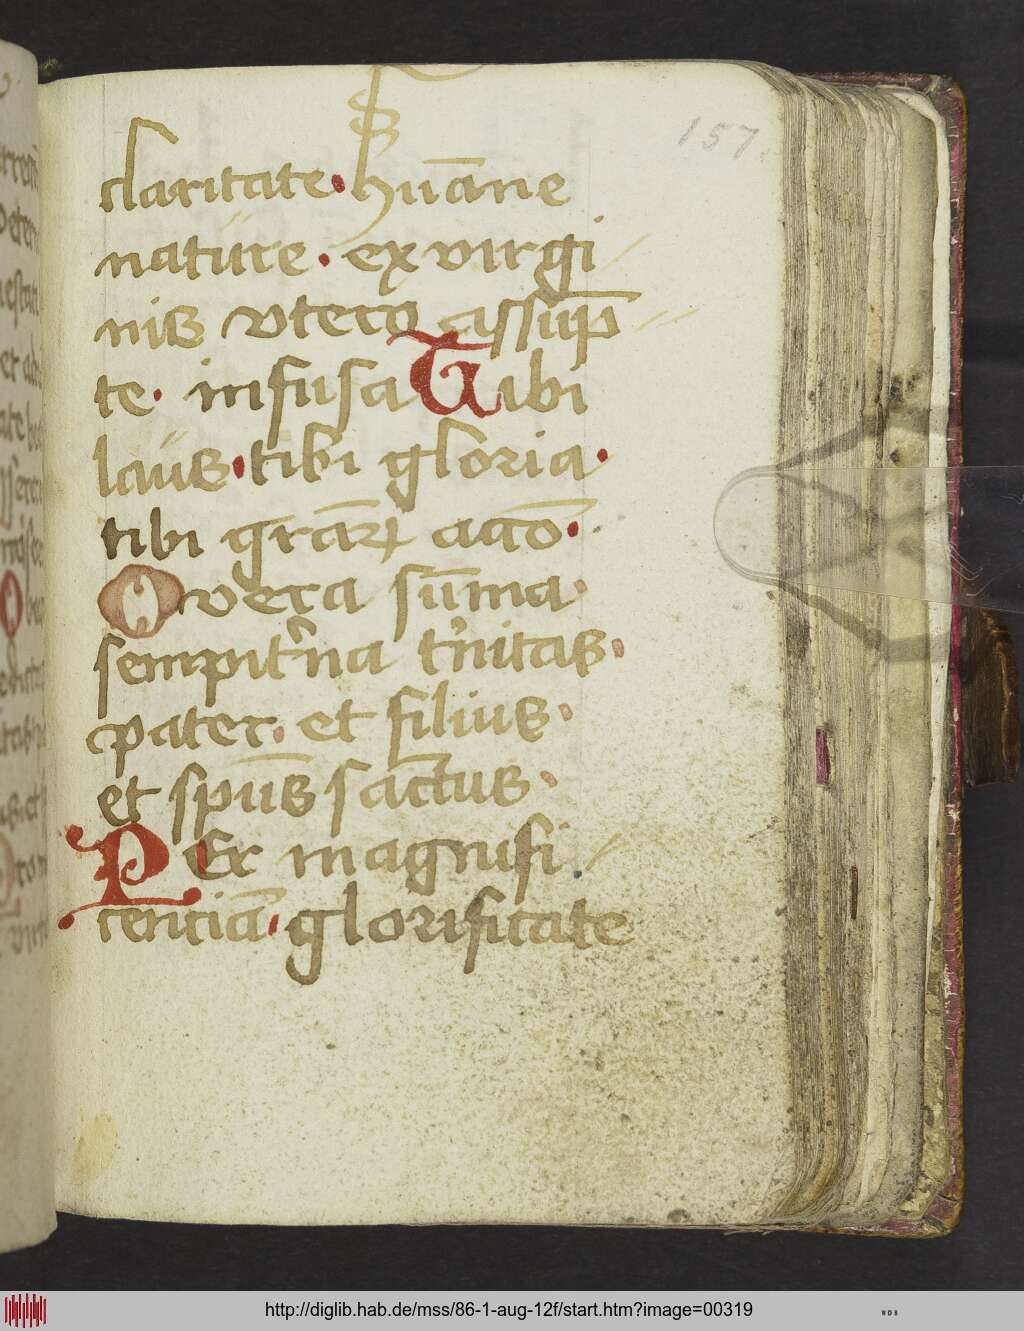 157
claritate. huāne
nature. ex virgi
nis vtero assūp
te. in fusa Tibi
laus. tibi gloria.
tibi graꝝ acco.
O vera sūma
sempit̉na t̉nitas.
pater. et filius.
et spūs sāctus.
PEr magnifi
cenciā. glorificate
http://diglib.hab.de/mss/86-1-aug-12f/start.htm?image=00319